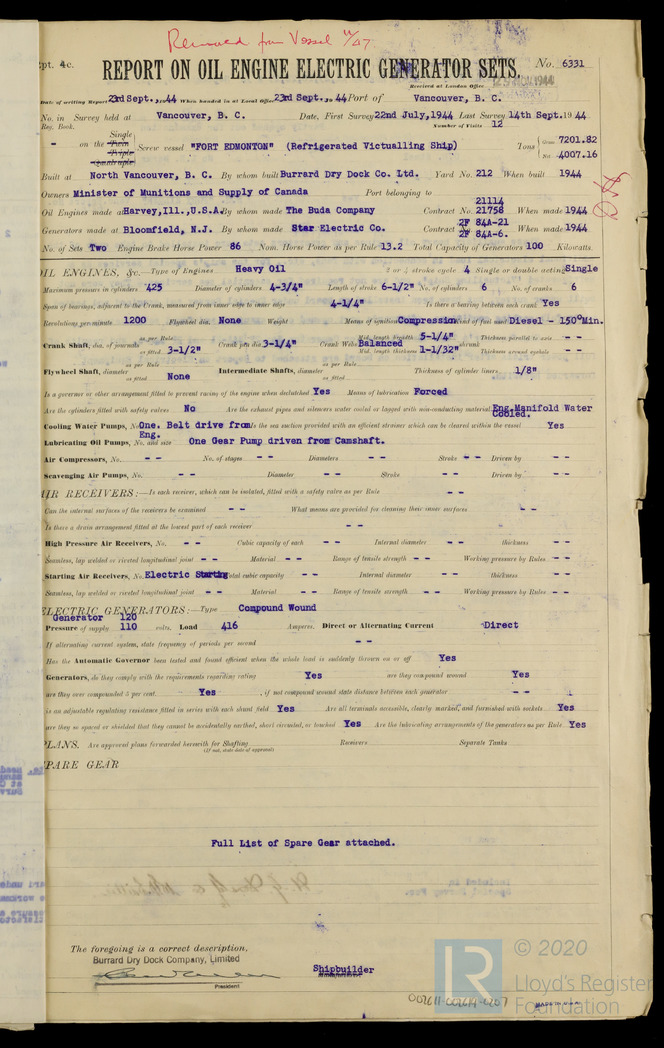 Removed from Vessel 11/47
pt. 4c.
REPORT ON OIL ENGINE ELECTRIC GENERATOR SETS.
No. 6331
Received at London Office
Date of writing Report 23rd Sept. 19 44 When handed in at Local Office 23rd Sept. 19 44 Port of Vancouver, B. C.
No. in Survey held at Vancouver, B. C. Date, First Survey 22nd July, 1944 Last Survey 14th Sept. 19 44
Reg. Book. Number of Visits 12
Single
- on the Twin Screw vessel "FORT EDMONTON" (Refrigerated Victualling Ship) Tons Gross 7201.82
Triple
Quadruple Net 4007.16
Built at North Vancouver, B. C. By whom built Burrard Dry Dock Co. Ltd. Yard No. 212 When built 1944
Owners Minister of Munitions and Supply of Canada Port belonging to
21114
Oil Engines made at Harvey, Ill., U.S.A. By whom made The Buda Company Contract No. 21758 When made 1944
2F 84A-21
Generators made at Bloomfield, N.J. By whom made Star Electric Co. Contract No. 2F 84A-6. When made 1944
No. of Sets Two Engine Brake Horse Power 86 Nom. Horse Power as per Rule 13.2 Total Capacity of Generators 100 Kilowatts.
OIL ENGINES, &c.—Type of Engines Heavy Oil 2 or 4 stroke cycle 4 Single or double acting Single
Maximum pressure in cylinders 425 Diameter of cylinders 4-3/4" Length of stroke 6-1/2" No. of cylinders 6 No. of cranks 6
Span of bearings, adjacent to the Crank, measured from inner edge to inner edge 4-1/4" Is there a bearing between each crank Yes
Revolutions per minute 1200 Flywheel dia. None Weight Means of ignition Compression Kind of fuel used Diesel - 150° Min.
Crank Shaft, dia. of journals as per Rule as fitted 3-1/2" Crank pin dia. 3-1/4" Crank Webs Balanced Mid. length breadth 5-1/4" Mid. length thickness 1-1/32" shrunk Thickness parallel to axis - - Thickness around eyehole - -
Flywheel Shaft, diameter as per Rule as fitted None Intermediate Shafts, diameter as per Rule as fitted Thickness of cylinder liners 1/8"
Is a governor or other arrangement fitted to prevent racing of the engine when declutched Yes Means of lubrication Forced
Are the cylinders fitted with safety valves No Are the exhaust pipes and silencers water cooled or lagged with non-conducting material Eng. Manifold Water Cooled.
Cooling Water Pumps, No. One. Belt drive from Eng. Is the sea suction provided with an efficient strainer which can be cleared within the vessel Yes
Lubricating Oil Pumps, No. and size One Gear Pump driven from Camshaft.
Air Compressors, No. - - No. of stages - - Diameters - - Stroke - - Driven by - -
Scavenging Air Pumps, No. - - Diameter - - Stroke - - Driven by - -
AIR RECEIVERS:—Is each receiver, which can be isolated, fitted with a safety valve as per Rule - -
Can the internal surfaces of the receivers be examined - - What means are provided for cleaning their inner surfaces - -
Is there a drain arrangement fitted at the lowest part of each receiver - -
High Pressure Air Receivers, No. - - Cubic capacity of each - - Internal diameter - - thickness - -
Seamless, lap welded or riveted longitudinal joint - - Material - - Range of tensile strength - - Working pressure by Rules - -
Starting Air Receivers, No. Electric Starting Total cubic capacity - - Internal diameter - - thickness - -
Seamless, lap welded or riveted longitudinal joint - - Material - - Range of tensile strength - - Working pressure by Rules - -
ELECTRIC GENERATORS:—Type Compound Wound
Generator 120
Pressure of supply 110 volts. Load 416 Amperes. Direct or Alternating Current Direct
If alternating current system, state frequency of periods per second - -
Has the Automatic Governor been tested and found efficient when the whole load is suddenly thrown on or off Yes
Generators, do they comply with the requirements regarding rating Yes are they compound wound Yes
are they over compounded 5 per cent. Yes , if not compound wound state distance between each generator - -
is an adjustable regulating resistance fitted in series with each shunt field Yes Are all terminals accessible, clearly marked, and furnished with sockets Yes
are they so spaced or shielded that they cannot be accidentally earthed, short circuited, or touched Yes Are the lubricating arrangements of the generators as per Rule Yes
PLANS. Are approved plans forwarded herewith for Shafting Receivers Separate Tanks
(If not, state date of approval)
SPARE GEAR
Full List of Spare Gear attached.
The foregoing is a correct description,
Burrard Dry Dock Company, Limited
President
Shipbuilder
LR
© 2020
Lloyd's Register
Foundation
002611-002614-0207
MADE IN U.S.A.